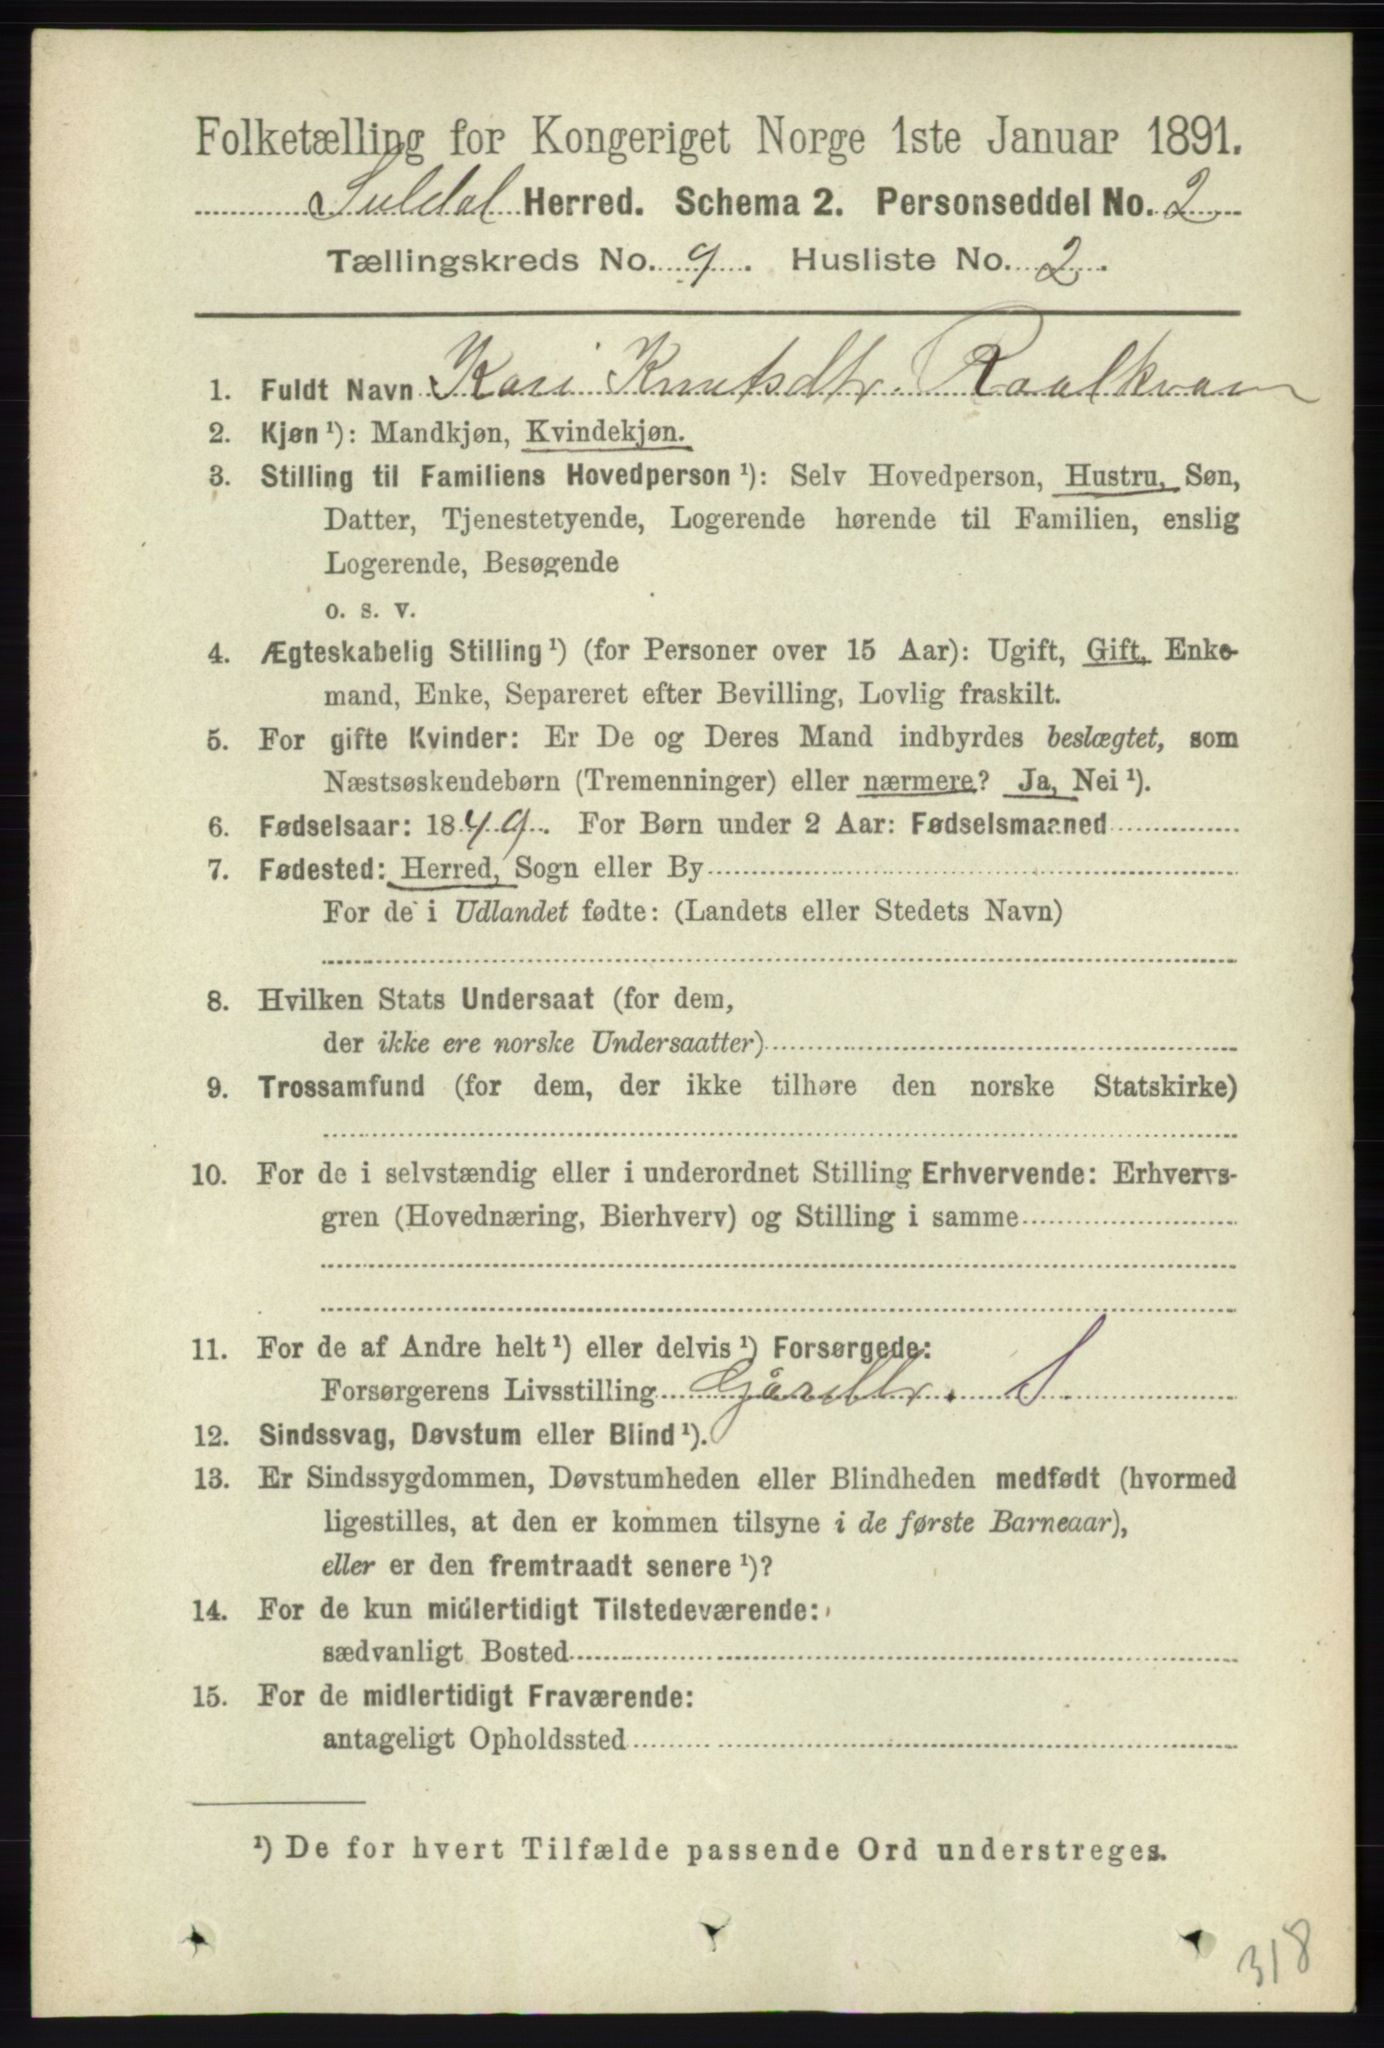 Folketælling for Kongeriget Norge 1ste Januar 1891.
Suldal Herred. Schema 2. Personseddel No. 2
Tællingskreds No. 9. Husliste No. 2.
1. Fuldt Navn Kari Knutsdtr. Raalkvam
2. Kjøn ¹): Mandkjøn, Kvindekjøn.
3. Stilling til Familiens Hovedperson ¹): Selv Hovedperson, Hustru, Søn,
Datter, Tjenestetyende, Logerende hørende til Familien, enslig
Logerende, Besøgende
o. s. v.
4. Ægteskabelig Stilling ¹) (for Personer over 15 Aar): Ugift, Gift, Enke-
mand, Enke, Separeret efter Bevilling, Lovlig fraskilt.
5. For gifte Kvinder: Er De og Deres Mand indbyrdes beslægtet, som
Næstsøskendebørn (Tremenninger) eller nærmere? Ja, Nei ¹).
6. Fødselsaar: 1849. For Børn under 2 Aar: Fødselsmaaned
7. Fødested: Herred, Sogn eller By
For de i Udlandet fødte: (Landets eller Stedets Navn)
8. Hvilken Stats Undersaat (for dem,
der ikke ere norske Undersaatter)
9. Trossamfund (for dem, der ikke tilhøre den norske Statskirke)
10. For de i selvstændig eller i underordnet Stilling Erhvervende: Erhvervs-
gren (Hovednæring, Bierhverv) og Stilling i samme
11. For de af Andre helt ¹) eller delvis ¹) Forsørgede:
Forsørgerens Livsstilling Gårdbr. S
12. Sindssvag, Døvstum eller Blind ¹).
13. Er Sindssygdommen, Døvstumheden eller Blindheden medfødt (hvormed
ligestilles, at den er kommen tilsyne i de første Barneaar),
eller er den fremtraadt senere ¹)?
14. For de kun midlertidigt Tilstedeværende:
sædvanligt Bosted
15. For de midlertidigt Fraværende:
antageligt Opholdssted
¹) De for hvert Tilfælde passende Ord understreges.
318